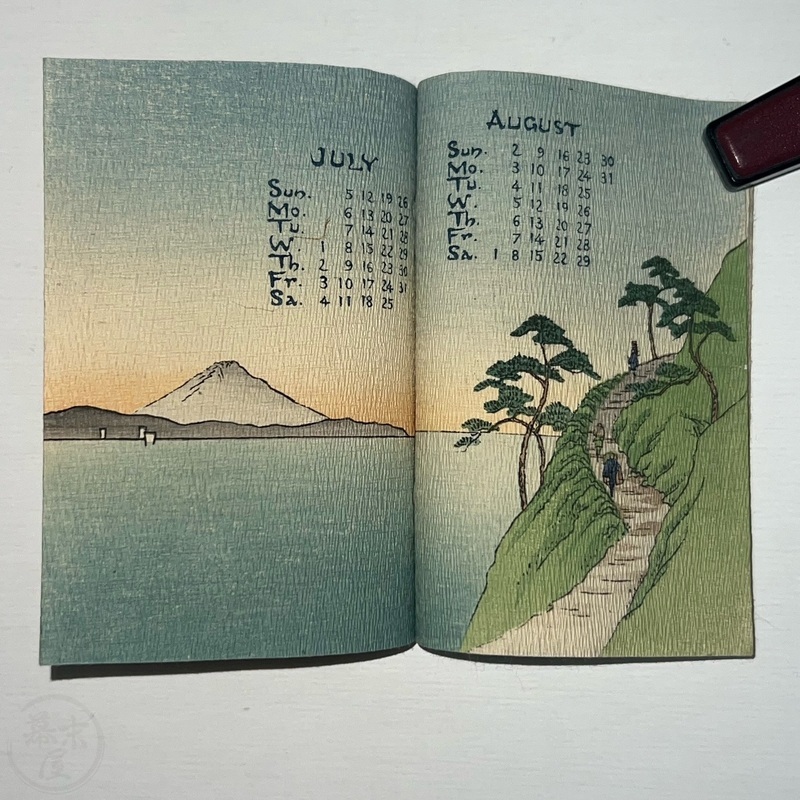 JULY
Sun. 5 12 19 26
Mo. 6 13 20 27
Tu. 7 14 21 28
W. 1 8 15 22 29
Th. 2 9 16 23 30
Fr. 3 10 17 24 31
Sa. 4 11 18 25
AUGUST
Sun. 2 9 16 23 30
Mo. 3 10 17 24 31
Tu. 4 11 18 25
W. 5 12 19 26
Th. 6 13 20 27
Fr. 7 14 21 28
Sa. 1 8 15 22 29
幕末
屋